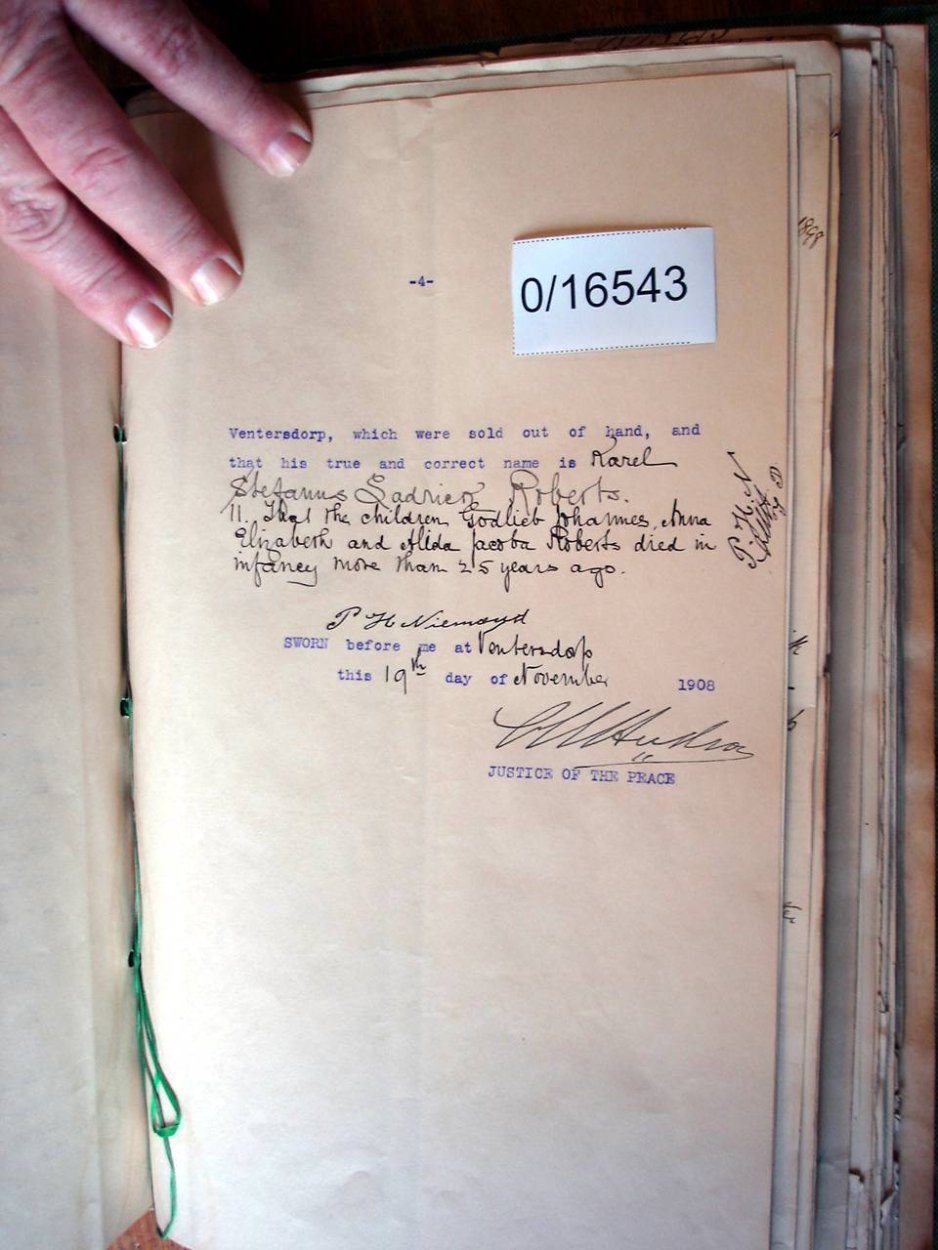 -4-
0/16543
Ventersdorp, which were sold out of hand, and
that his true and correct name is Karel
Stefanus Sadrick Roberts.
11. That the children Godlieb Johannes, Anna
Elizabeth and Alida Jacoba Roberts died in
infancy more than 25 years ago.
P. H. N
P H Niemand
SWORN before me at Ventersdorp
this 19th day of November 1908
JUSTICE OF THE PEACE
1898